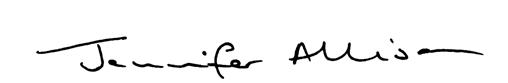 Jennifer Allison